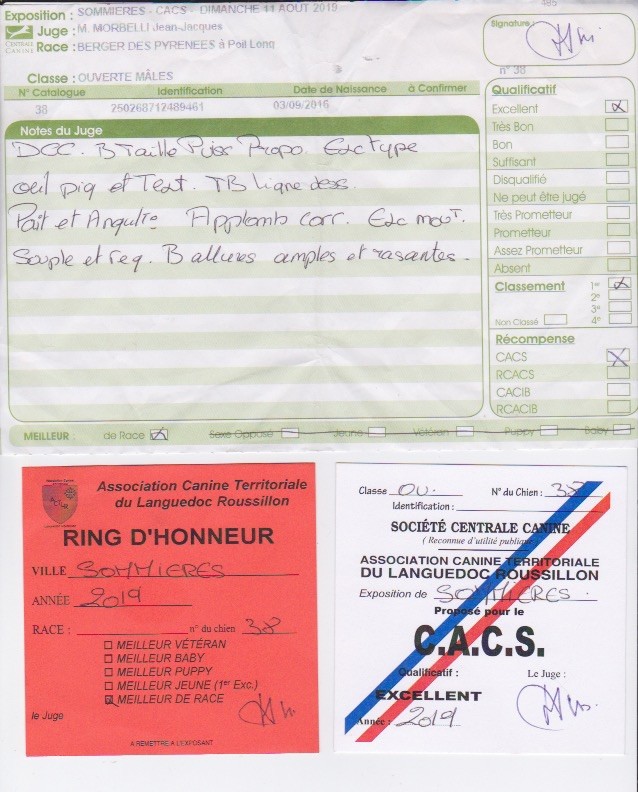 485
Exposition : SOMMIERES - CACS - DIMANCHE 11 AOUT 2019
Juge : M. MORBELLI Jean-Jacques
CENTRALE CANINE
Race : BERGER DES PYRENEES à Poil Long
Signature
Classe : OUVERTE MÂLES
n° 38
N° Catalogue Identification Date de Naissance à Confirmer
38 250268712489461 03/09/2016
Notes du Juge
DCC. B Taille Puis Propo. Exc Type
oeil pig et Text. TB ligne dess
Poit et Angul. Applomb corr. Exc mouvt.
Souple et reg. B allures amples et rasantes.
Qualificatif
Excellent
Très Bon
Bon
Suffisant
Disqualifié
Ne peut être jugé
Très Prometteur
Prometteur
Assez Prometteur
Absent
Classement 1er
2e
3e
Non Classé 4e
Récompense
CACS
RCACS
CACIB
RCACIB
MEILLEUR : de Race Sexe Opposé Jeune Vétéran Puppy Baby
Association Canine Territoriale
du Languedoc Roussillon
RING D'HONNEUR
VILLE SOMMIERES
ANNÉE 2019
RACE : n° du chien 38
MEILLEUR VÉTÉRAN
MEILLEUR BABY
MEILLEUR PUPPY
MEILLEUR JEUNE (1er Exc.)
MEILLEUR DE RACE
le Juge
A REMETTRE A L'EXPOSANT
Classe OU. N° du Chien : 38
Identification :
SOCIÉTÉ CENTRALE CANINE
( Reconnue d'utilité publique )
ASSOCIATION CANINE TERRITORIALE
DU LANGUEDOC ROUSSILLON
Exposition de SOMMIERES.
Proposé pour le
C.A.C.S.
Qualificatif : Le Juge :
EXCELLENT
Année : 2019